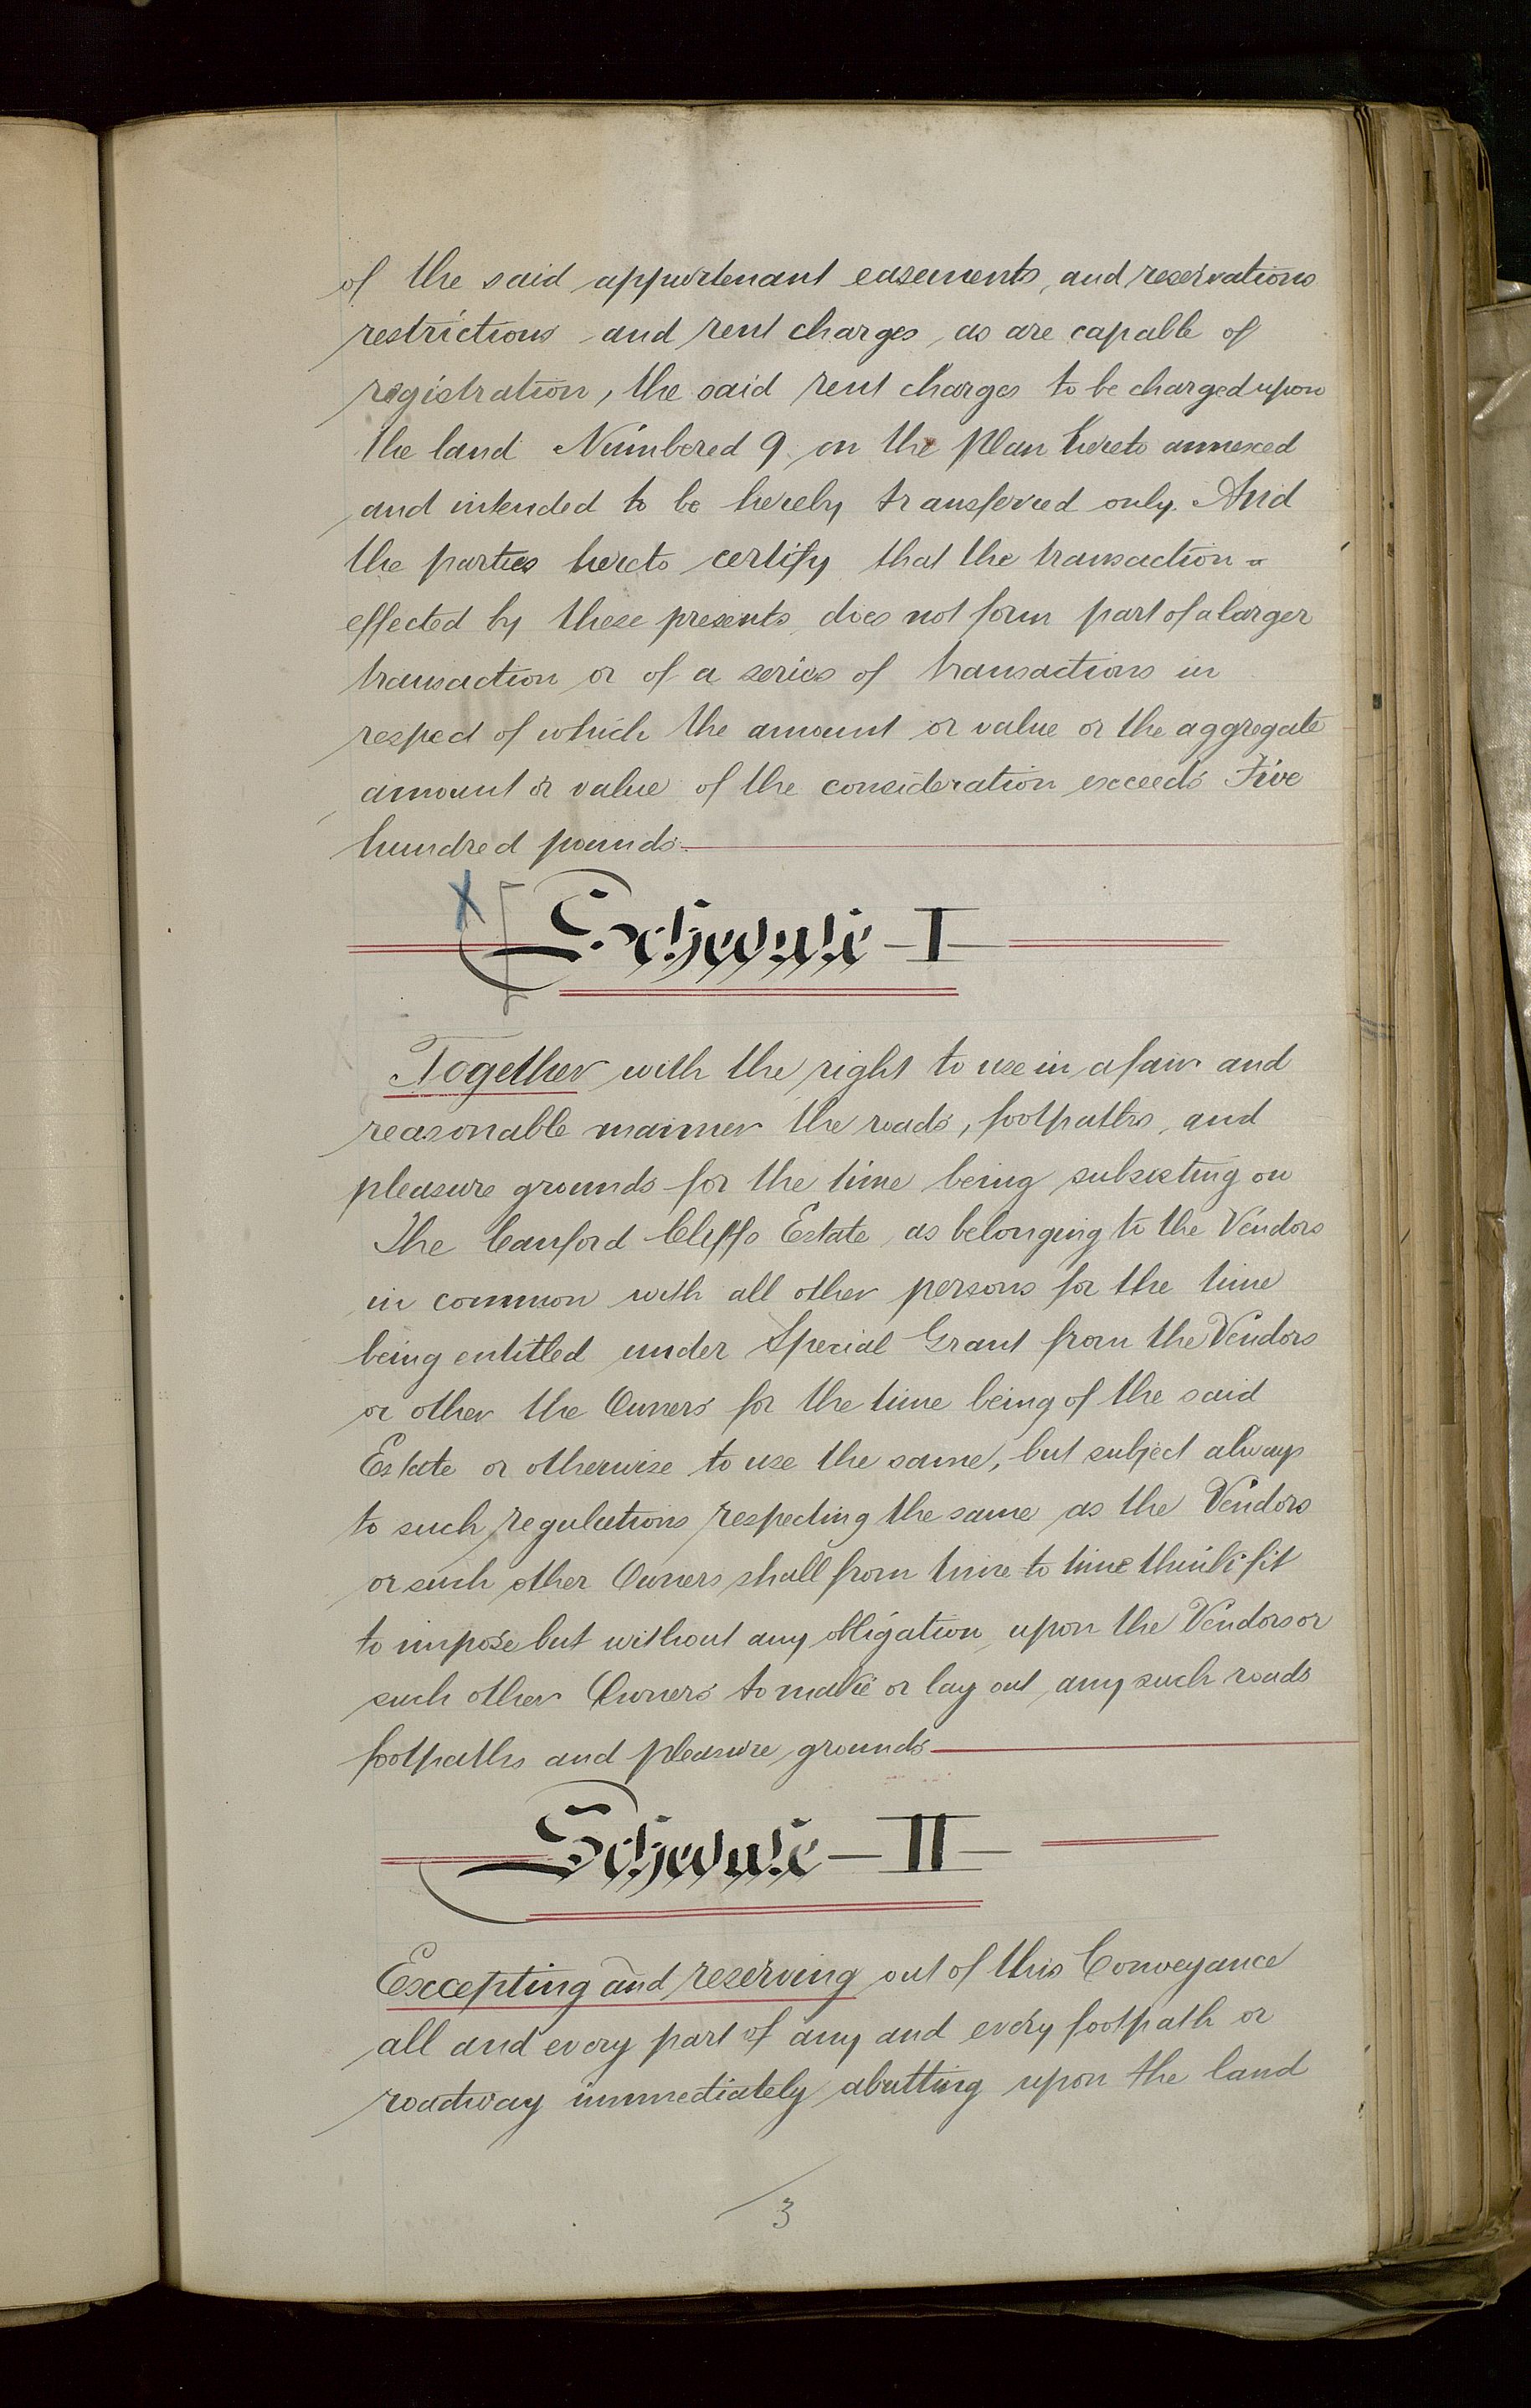 of the said appurtenant easements, and reservations
restrictions and rent charges, as are capable of
registration, the said rent charges to be charged upon
the land Numbered 9 on the Plan hereto annexed
and intended to be hereby transferred only. And
the parties hereto certify that the transaction
effected by these presents does not form part of a larger
transaction or of a series of transactions in
respect of which the amount or value or the aggregate
amount or value of the consideration exceeds Five
hundred pounds
X
Schedule - I
Together with the right to use in a fair and
reasonable manner the roads, footpaths, and
pleasure grounds for the time being subsisting on
The Canford Cliffs Estate as belonging to the Vendors
in common with all other persons for the time
being entitled under Special Grant from the Vendors
or other the Owners for the time being of the said
Estate or otherwise to use the same, but subject always
to such regulations respecting the same as the Vendors
or such other Owners shall from time to time think fit
to impose but without any obligation upon the Vendors or
such other Owners to make or lay out any such roads
footpaths and pleasure grounds
Schedule - II
Excepting and reserving out of this Conveyance
all and every part of any and every footpath or
roadway immediately abutting upon the land
3